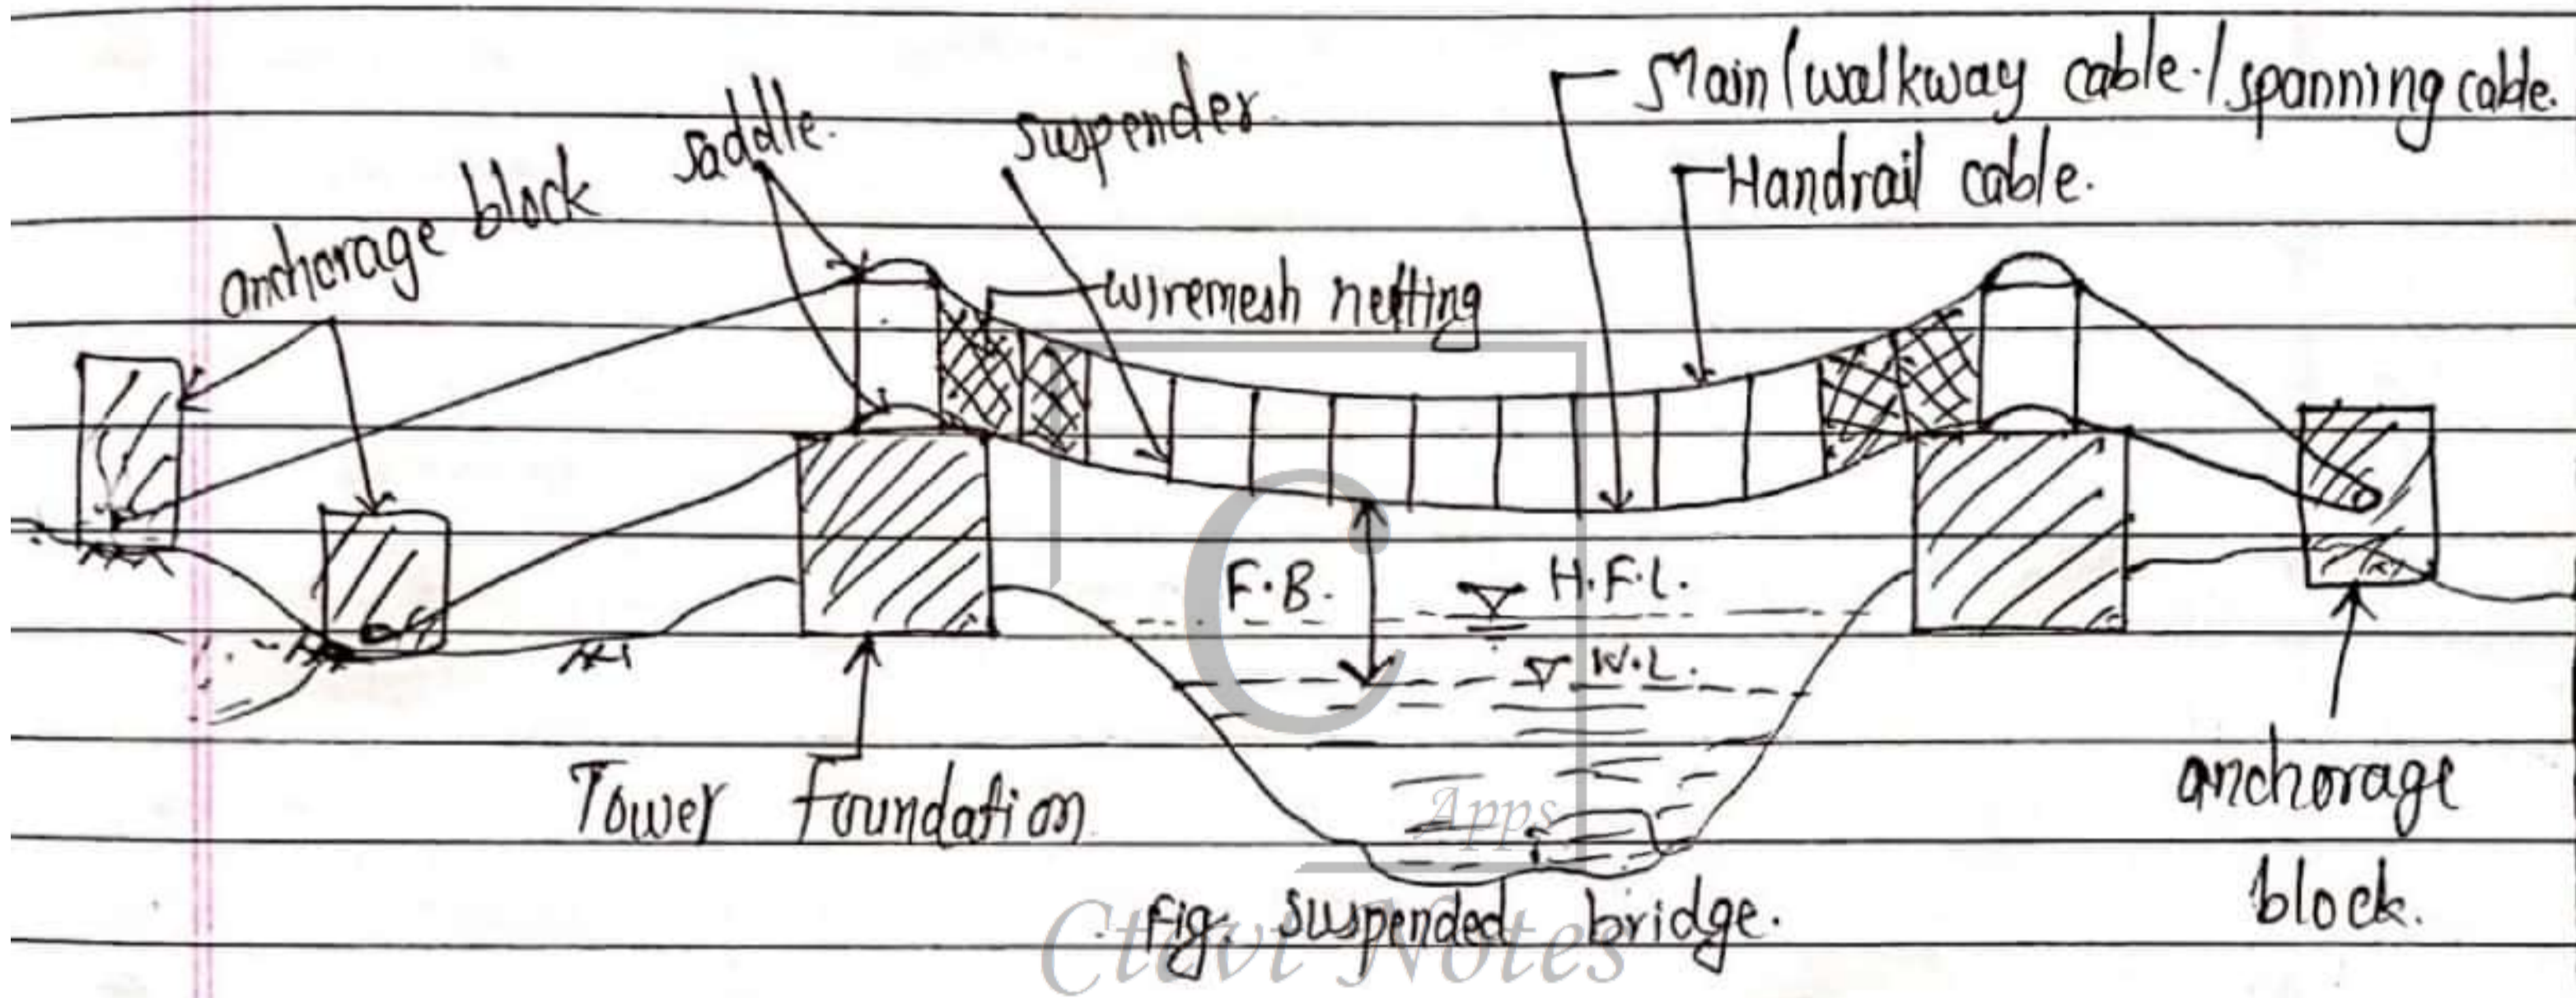 Main/walkway cable./spanning cable.
saddle.
suspender.
Handrail cable.
anchorage block
wiremesh netting
F.B.
H.F.L.
W.L.
Tower foundation
anchorage
block.
Apps
fig. suspended bridge.
Ctevt Notes